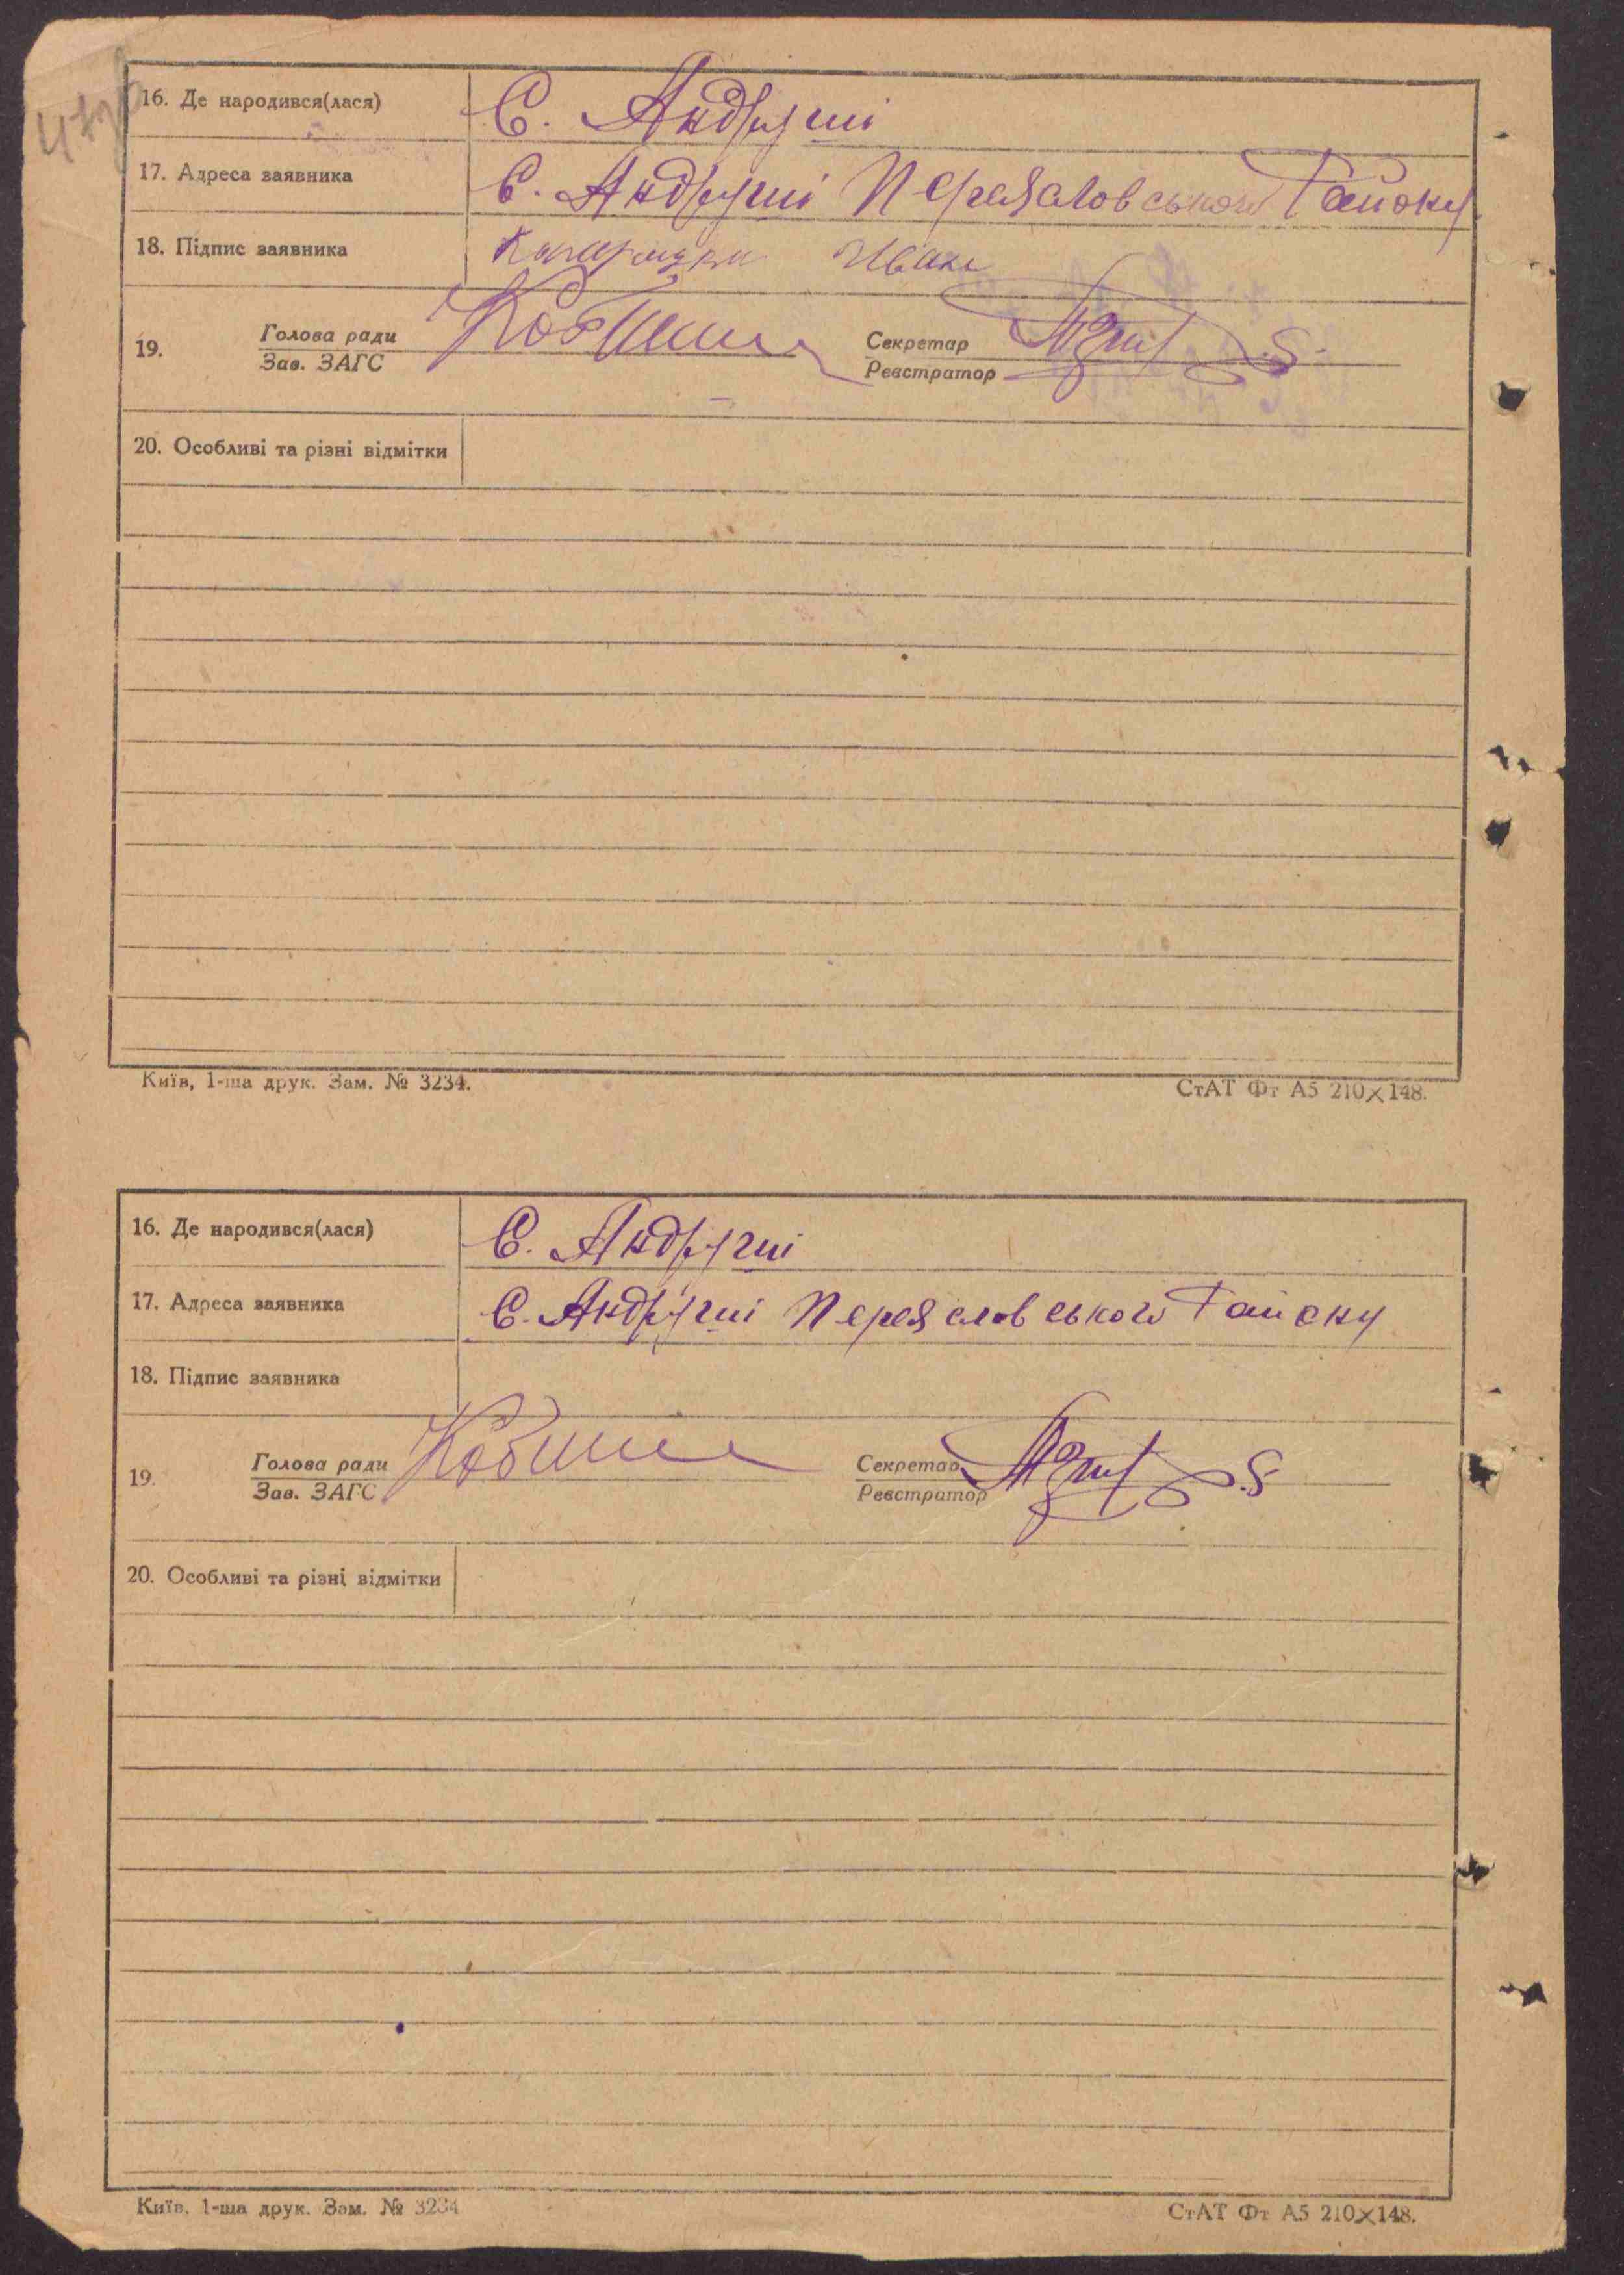 16. Де народився(лася) С. Андруші
17. Адреса заявника С. Андруші Переяславського Району
18. Підпис заявника
19. Голова ради Секретар
Зав. ЗАГС Реєстратор
20. Особливі та різні відмітки
Київ, 1-ша друк. Зам. № 3234. СтАТ Фт А5 210×148.
16. Де народився(лася) С. Андруші
17. Адреса заявника С. Андруші Переяславського Району
18. Підпис заявника
19. Голова ради Секретар
Зав. ЗАГС Реєстратор
20. Особливі та різні відмітки
Київ, 1-ша друк. Зам. № 3234 СтАТ Фт А5 210×148.